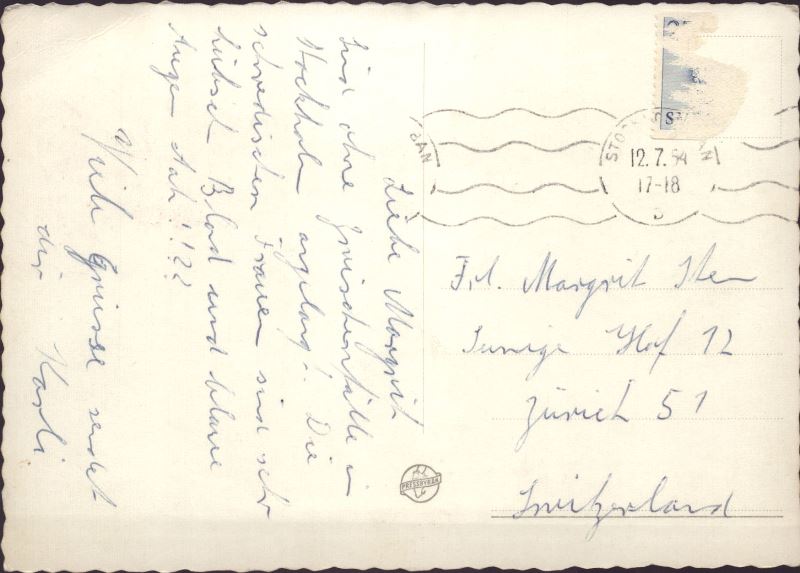 Liebe Margrit
Sind ohne Zwischenfälle in
Stockholm angelangt. Die
schwedischen Frauen sind sehr
hübsch Blond und blaue
Augen Aah!!??
Viele Grüsse sendet
dir Karli
BAN
12.7.54
17-18
Frl. Margrit Iten
Hof 12
Zürich 51
Switzerland
PRESSBYRÅN